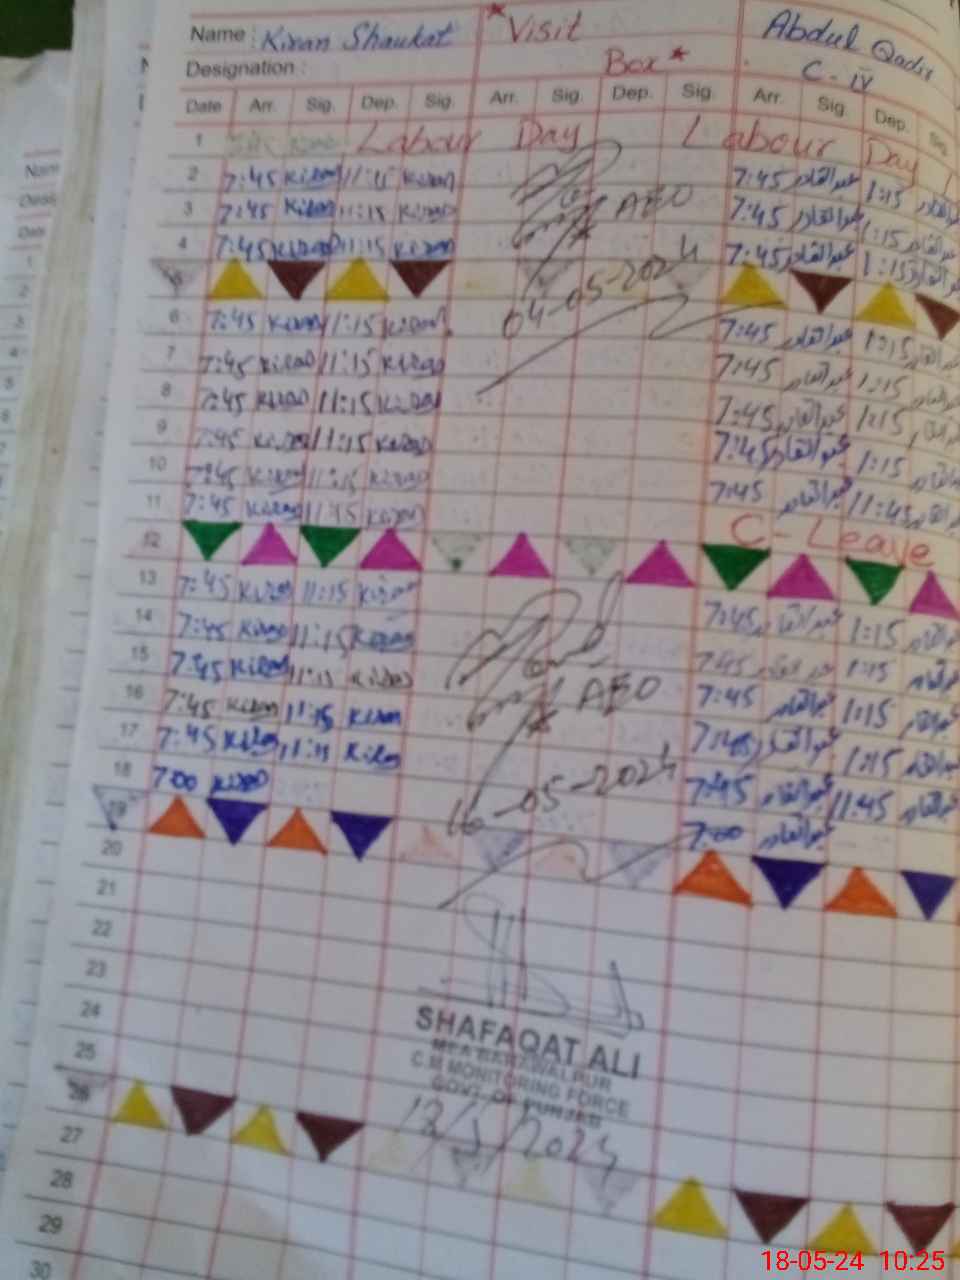 Name : Kiran Shaukat * Visit Abdul Qadir
Designation : Box * C - IV
Date Arr. Sig. Dep. Sig. Arr. Sig. Dep. Sig. Arr. Sig. Dep. Sig.
1 Labour Day Labour Day
2 7:45 Kiran 11:15 Kiran 7:45 عبدالقادر 1:15
3 7:45 Kiran 11:15 Kiran AEO 7:45 عبدالقادر 1:15
4 7:45 Kiran 11:15 Kiran 7:45 عبدالقادر 1:15
04-05-2024
6 7:45 Kiran 11:15 Kiran 7:45 عبدالقادر 1:15
7 7:45 Kiran 11:15 Kiran 7:45 عبدالقادر 1:15
8 7:45 Kiran 11:15 Kiran 7:45 عبدالقادر 1:15
9 7:45 Kiran 11:15 Kiran 7:45 عبدالقادر 1:15
10 7:45 Kiran 11:15 Kiran 7:45 عبدالقادر 11:45
11 7:45 Kiran 11:45 Kiran C - Leave
12
13 7:45 Kiran 11:15 Kiran 7:45 عبدالقادر 1:15
14 7:45 Kiran 11:15 Kiran 7:45 عبدالقادر 1:15
15 7:45 Kiran 11:15 Kiran AEO 7:45 عبدالقادر 1:15
16 7:45 Kiran 11:15 Kiran 7:45 عبدالقادر 1:15
17 7:45 Kiran 11:15 Kiran 7:45 عبدالقادر 11:45
18 7:00 Kiran 16-05-2024 7:00 عبدالقادر
19
20
21
22
23
24
SHAFAQAT ALI
25
MEA BAHAWALPUR
C.M MONITORING FORCE
GOVT. OF PUNJAB
26
27
28
29
30
18-05-24 10:25